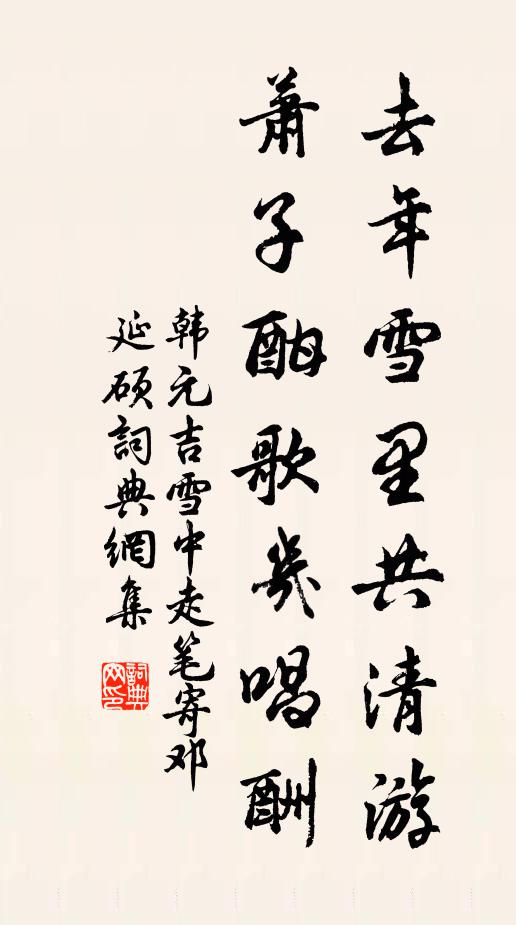 去年雪里共清游
萧子酣歌几唱酬
韩元吉雪中走笔寄邓
延硕词典网集
词典网印